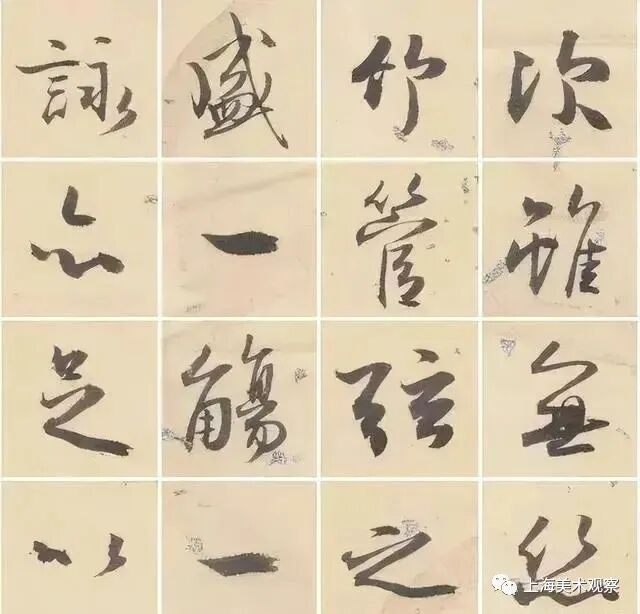 次雖無絲
竹管弦之
盛一觴一
詠亦足以
上海美术观察